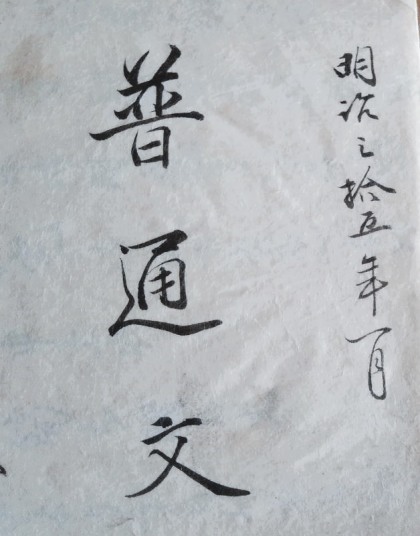 明治三拾五年一月
普通文